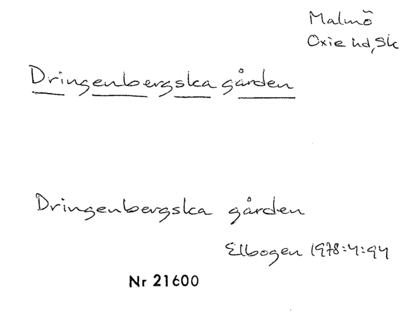 Malmö
Oxie hd, Sk
Dringenbergska gården
Dringenbergska gården
Elbogen 1978:4:94
Nr 21600